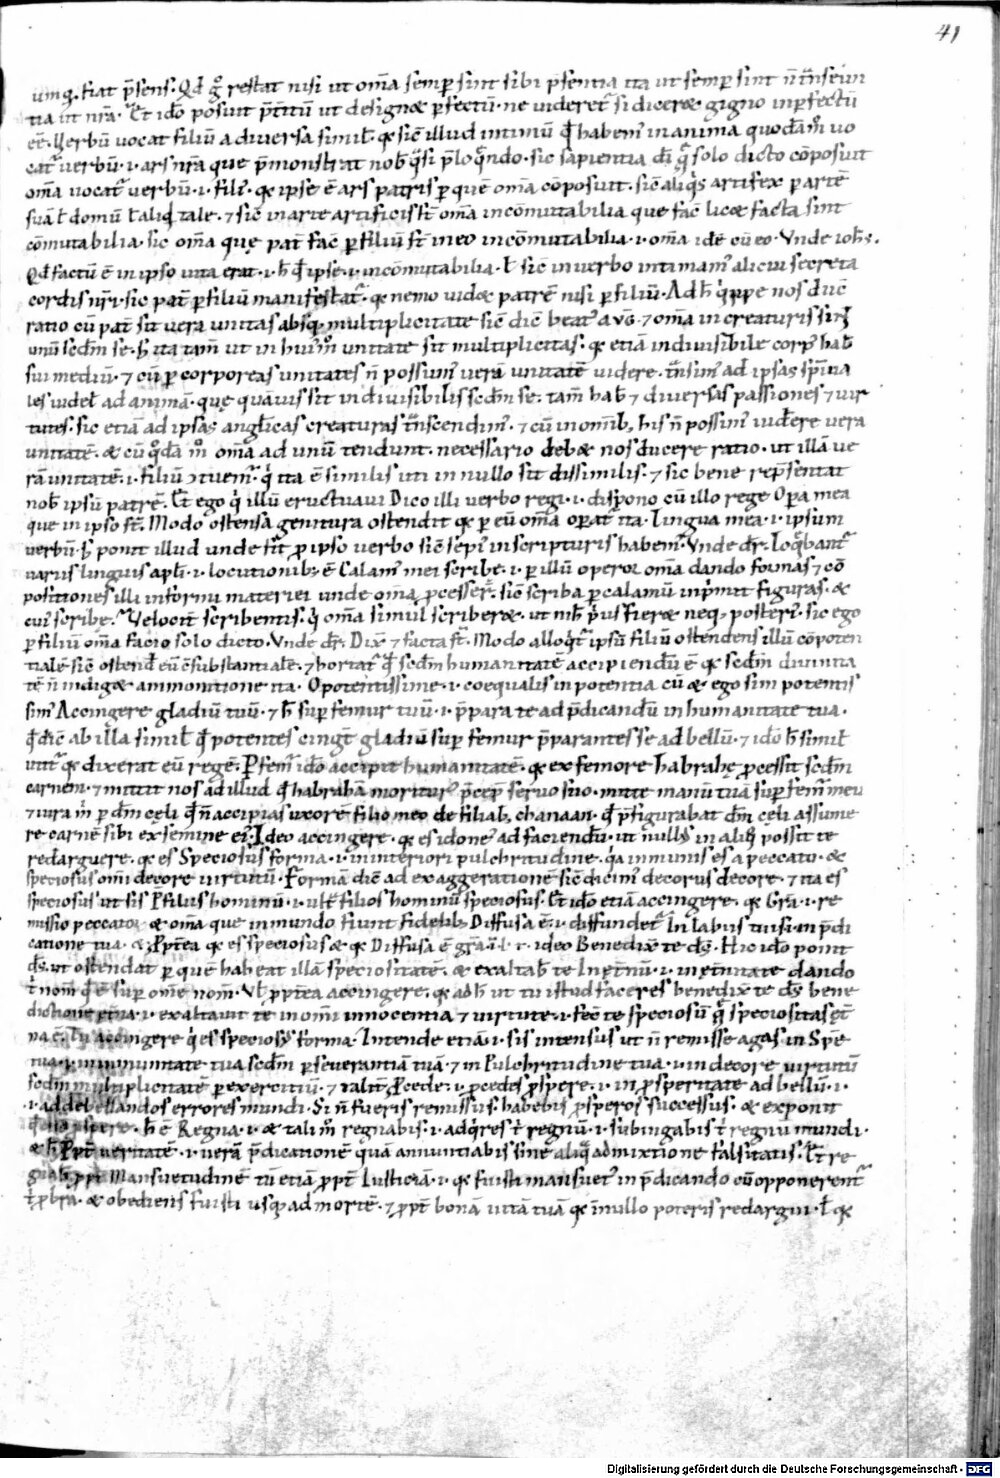 41
umq̄. fiat p̄sens. Qd̄ g̊ restat nisi ut om̄a semp sint sibi p̄sentia ita ut semp sint n̄ t̄nseun
tia ut nr̄a. Et ido posuit p̄t̄itū ut designæ pfectū. ne videret̄ si diceræ gigno inpfectū
eē. Verbū vocat filiū a diversa simil. qꝫ sic̄ illud intimū qd̄ habem' in anima quodām̊ vo
cat̄ verbū .i. ars nr̄a que p̄monstrat nob̄ q̄si p̄loq̄ndo. sic sapientia dī q̄ solo dicto cōposuit
om̄a vocat̄ verbū .i. fili'. qꝫ ipse ē ars patris p quē om̄a cōposuit. sic̄ aliq̄s artifex p artē
suā ł domū ł aliq̄d tale. ⁊ sic̄ in arte artificis st̄ om̄a incōmutabilia que fac̄ licæ facta sint
cōmutabilia. sic om̄a quę pat̄ fac̄ p filiū st̄ in eo incōmutabilia .i. om̄a idē cū eo. Unde Ioh̄s.
Qd̄ factū ē in ipso vita erat .i. h̄ qd̄ ipse .i. incōmutabilia. ł sic̄ in verbo intimam' alicui secreta
cordis nr̄i. sic pat̄ p filiū manifestat̄. qꝫ nemo videt patrē nisi p filiū. Ad h̄ q̄ppe nos duc̄
ratio cū pat̄ sit vera unitas absq̄ multiplicitate sic̄ dic̄ beat' avḡ. ⁊ om̄a in creaturis sint
unū scdm̄ se. h̄ ita tam̄ ut in hui'm̊ unitate sit multiplicitas. qꝫ etiā indivisibile corp' hab̄
sui mediū. ⁊ cū p corporeas unitates n̄ possum' verā unitatē videre. t̄nsim' ad ipsas sp̄ina
les videł ad animā. quę quāvis sit indivisibilis scdm̄ se. tam̄ hab̄ ⁊ diversas passiones ⁊ vir
tutes. sic etiā ad ipsas anglicas creaturas t̄nscendim'. ⁊ cū in omīb; his n̄ possim' videre vera
unitatē. ⁊ cū q̊dā m̊ om̄a ad unū tendunt. necessario debæ nos ducere ratio. ut illā ve
rā unitatē .i. filiū ɔtuem̄. q̄ ita ē similis uti in nullo sit dissimilis. ⁊ sic bene rep̄sentat
nob̄ ipsū patrē. Et ego q̄ illū eructuavi Dico illi verbo regi .i. dispono cū illo rege Opa mea
que in ipso st̄. Modo ostensa genitura ostendit qꝫ p eū om̄a opat̄ ita. Lingua mea .i. ipsum
verbū. h̄ ponit illud unde fit p ipso verbo sic̄ sepi' in scripturis habem'. Unde dr̄. Loq̄bant̄
variis linguis apłi .i. locutionib; ē Calam' mei scribe .i. p illū operor om̄a dando formas ⁊ cō
positiones illi informi materiei unde om̄a pcesser̄. sic̄ scriba p calamū inp̄mit figuras. ⁊
cui' scribe? Velocit̄ scribentis. q̄ om̄a simul scriberæ. ut nich̄ pri' fieræ neq; posteri'. sic ego
p filiū om̄a facio solo dicto. Unde dr̄. Dix̄ ⁊ facta st̄. Modo alloq̄t̄ ipsū filiū ostendens illū cōpoten
tialē sic̄ ostend̄ eū c̄substantialē. ⁊ hortat̄ qd̄ scdm̄ humanitatē accipiendū ē qꝫ scdm̄ divinita
tē n̄ indigæ ammonitione ita. O potentissime .i. coequalis in potentia cū ⁊ ego sim potentis
sim' Accingere gladiū tuū. ⁊ h̄ sup femur tuū .i. p̄para te ad p̄dicandū in humanitate tua.
qd̄ dic̄ ab illa simił qd̄ potentes cingt̄ gladiū sup femur p̄parantes se ad bellū. ⁊ ido h̄ simił
utit̄ qꝫ dixerat eū regē. P fem̄ ido accipit humanitatē. qꝫ ex femore habrahę pcessit scdm̄
carnem. ⁊ mittit nos ad illud qd̄ habrahā moritur' p̄cep̄ servo suo. mitte manū tuā sup fem̄ meū
⁊ iura m̄ p dm̄ celi qd̄ n̄ accipias uxorē filio meo de filiab; chanaan. qd̄ p̄figurabat dm̄ celi assume
re carnē sibi ex semine ei'. Ideo accingere. qꝫ es idone' ad faciendū. ut null's in aliq̄ possit te
redarguere. qꝫ es Speciosus forma .i. in interiori pulchritudine. q̄a inmunis es a peccato. ⁊
speciosus om̄i decore virtutū. Formā dic̄ ad exaggerationē sic̄ dicim' decorus decore. ⁊ ita es
speciosus ut sis P̄ filiis hominū .i. ult̄ filios hominū speciosus. Et ido etiā accingere. qꝫ Gr̄a .i. re
missio peccatoꝝ ⁊ om̄a que in mundo fiunt fidelib; Diffusa ē .i. diffundet̄ In labiis tuis .i. in p̄di
catione tua. ⁊ Ppt̄ea qꝫ es speciosus ⁊ qꝫ Diffusa ē gr̄a . ideo Benedixit te ds̄. Hic ido ponit
ds̄. ut ostendat p quē habeat illā speciositatē. ⁊ exaltab̄ te In et̄nū .i. in et̄nitate dando
t̄ nom̄ qd̄ ē sup om̄e nom̄. Ul' ppt̄ea accingere. qꝫ ad h̄ ut tu istud faceres benedix̄ te ds̄ bene
dictione et̄na .i. exaltavit te in om̄i innocentia ⁊ virtute .i. fec̄ te speciosū q̄ speciositas et̄
na ē. Tu accingere q̄ es specios' forma. Intende etiā .i. sis intensus ut n̄ remisse agas in Spe
tua .i. in inmunitate tua scdm̄ pseverantiā tuā. ⁊ in Pulchritudine tua .i. in decore virtutū
scdm̄ multiplicitatē p exercitiū. ⁊ talit̄ Pcede .i. pcedes pspere .i. in psperitate ad bellū .i.
.i. ad debellandos errores mundi. Si n̄ fueris remissus. habebis psperos successus. ⁊ exponit
pspere. h̄ ē Regna .i. ⁊ tali m̊ regnabis .i. adq̄res t̄ regnū .i. subiugabis t̄ regnū mundi.
⁊ h̄ Ppt̄ veritatē .i. verā p̄dicationē quā annuntiabis sine aliq̄ admixtione falsitatis. Et re
gnab̄ ppt̄ Mansuetudinē tuā etiā ppt̄ Iusticiā .i. qꝫ fuisti mansuet' in p̄dicando cū opponerent̄
t̄ pbra. ⁊ obediens fuisti usq; ad mortē. ⁊ ppt̄ bonā vitā tuā qꝫ in nullo poteris redargui. ł qꝫ
Digitalisierung gefördert durch die Deutsche Forschungsgemeinschaft - DFG